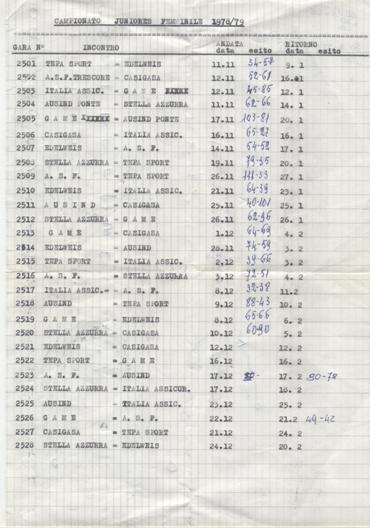 CAMPIONATO JUNIORES FEMMINILE 1978/79
ANDATA RITORNO
GARA N° INCONTRO data esito data esito
2501 TEPA SPORT = EDELWEIS 11.11 34-58 9. 1
2592 A.S.F.TRESCORE = CASIGASA 12.11 52-61 16. 1
2503 ITALIA ASSIC. = G A M E XXXXX 12.11 45-85 12. 1
2504 AUSIND PONTE = STELLA AZZURRA 11.11 62-66 14. 1
2505 G A M E XXXXXX = AUSIND PONTE 17.11 103-81 20. 1
2506 CASIGASA = ITALIA ASSIC. 16.11 65-27 16. 1
2507 EDELWEIS = A. S. F. 14.11 54-52 17. 1
2508 STELLA AZZURRA = TEPA SPORT 19.11 79-35 20. 1
2509 A. S. F. = TEPA SPORT 26.11 111-33 27. 1
2510 EDELWEIS = ITALIA ASSIC. 21.11 64-39 23. 1
2511 A U S I N D = CASIGASA 25.11 40-101 25. 1
2512 STELLA AZZURRA = G A M E 26.11 62-96 26. 1
2513 G A M E = CASIGASA 1.12 64-69 4. 2
2514 EDELWEIS = AUSIND 28.11 74-59 3. 2
2515 TEPA SPORT = ITALIA ASSIC. 2.12 39-66 3. 2
2516 A. S. F. = STELLA AZZURRA 3.12 72-51 4. 2
2517 ITALIA ASSIC.= = A. S. F. 8.12 32-38 11.2
2518 AUSIND = TEPA SPORT 9.12 88-43 10. 2
2519 G A M E = EDELWEIS 8.12 65-66 6. 2
2520 STELLA AZZURRA = CASIGASA 10.12 60-90 5. 2
2521 EDELWEIS = CASIGASA 12.12 12. 2
2522 TEPA SPORT = G A M E 16.12 16. 2
2523 A. S. F. = AUSIND 17.12 17. 2 80-78
2524 STELLA AZZURRA = ITALIA ASSICUR. 17.12 18. 2
2525 AUSIND = ITALIA ASSIC. 23.12 25. 2
2526 G A M E = A. S. F. 22.12 21.2 49-42
2527 CASIGASA = TEPA SPORT 21.12 24. 2
2528 STELLA AZZURRA = EDELWEIS 24.12 20. 2